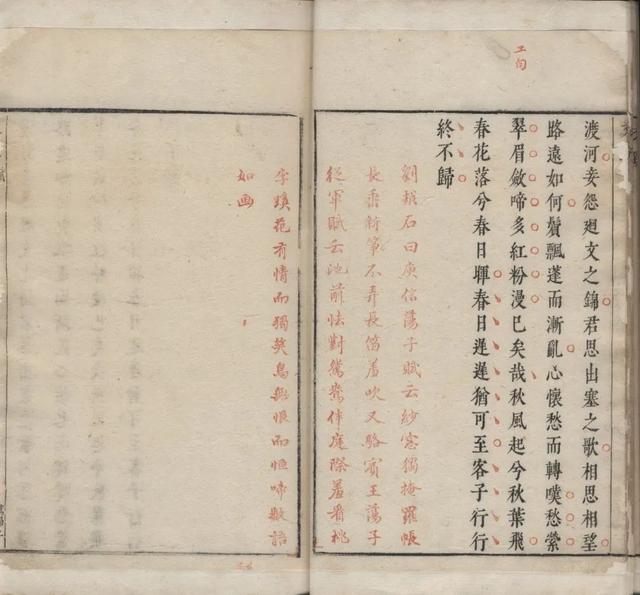 工句
渡河妾怨廻文之錦君思出塞之歌相思相望
路遠如何鬢飄蓬而漸亂心懷愁而轉嘆愁縈
翠眉斂啼多紅粉漫已矣哉秋風起兮秋葉飛
春花落兮春日暉春日遲遲猶可至客子行行
終不歸
劉越石曰庾信蕩子賦云紗窓獨掩羅帳
長垂新箏不弄長笛羞吹又駱賓王蕩子
從軍賦云池前怯對鴛鴦伴庭際羞看桃
李蹊花有情而獨笑鳥無恨而恒啼數語
如画